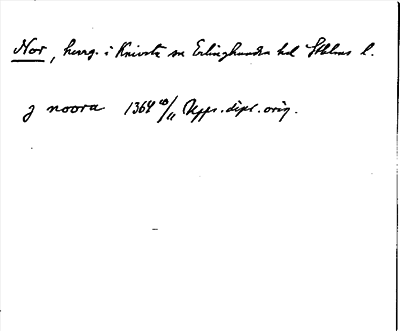 Nor, herrg. i Knivsta sn Erlinghundra hd Sthlms l.
j noora 1364 20/11 Upps. dipl. orig.